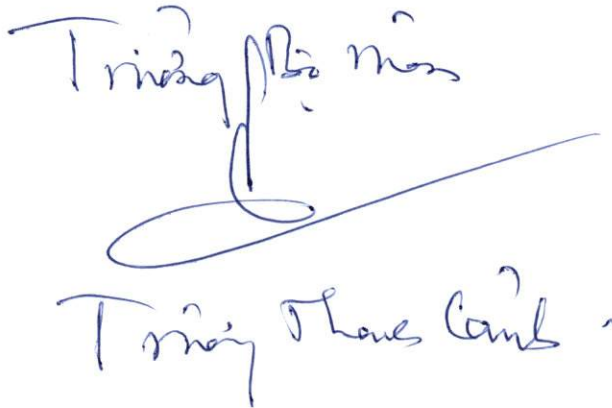 Trưởng Bộ môn
Trương Thanh Cảnh